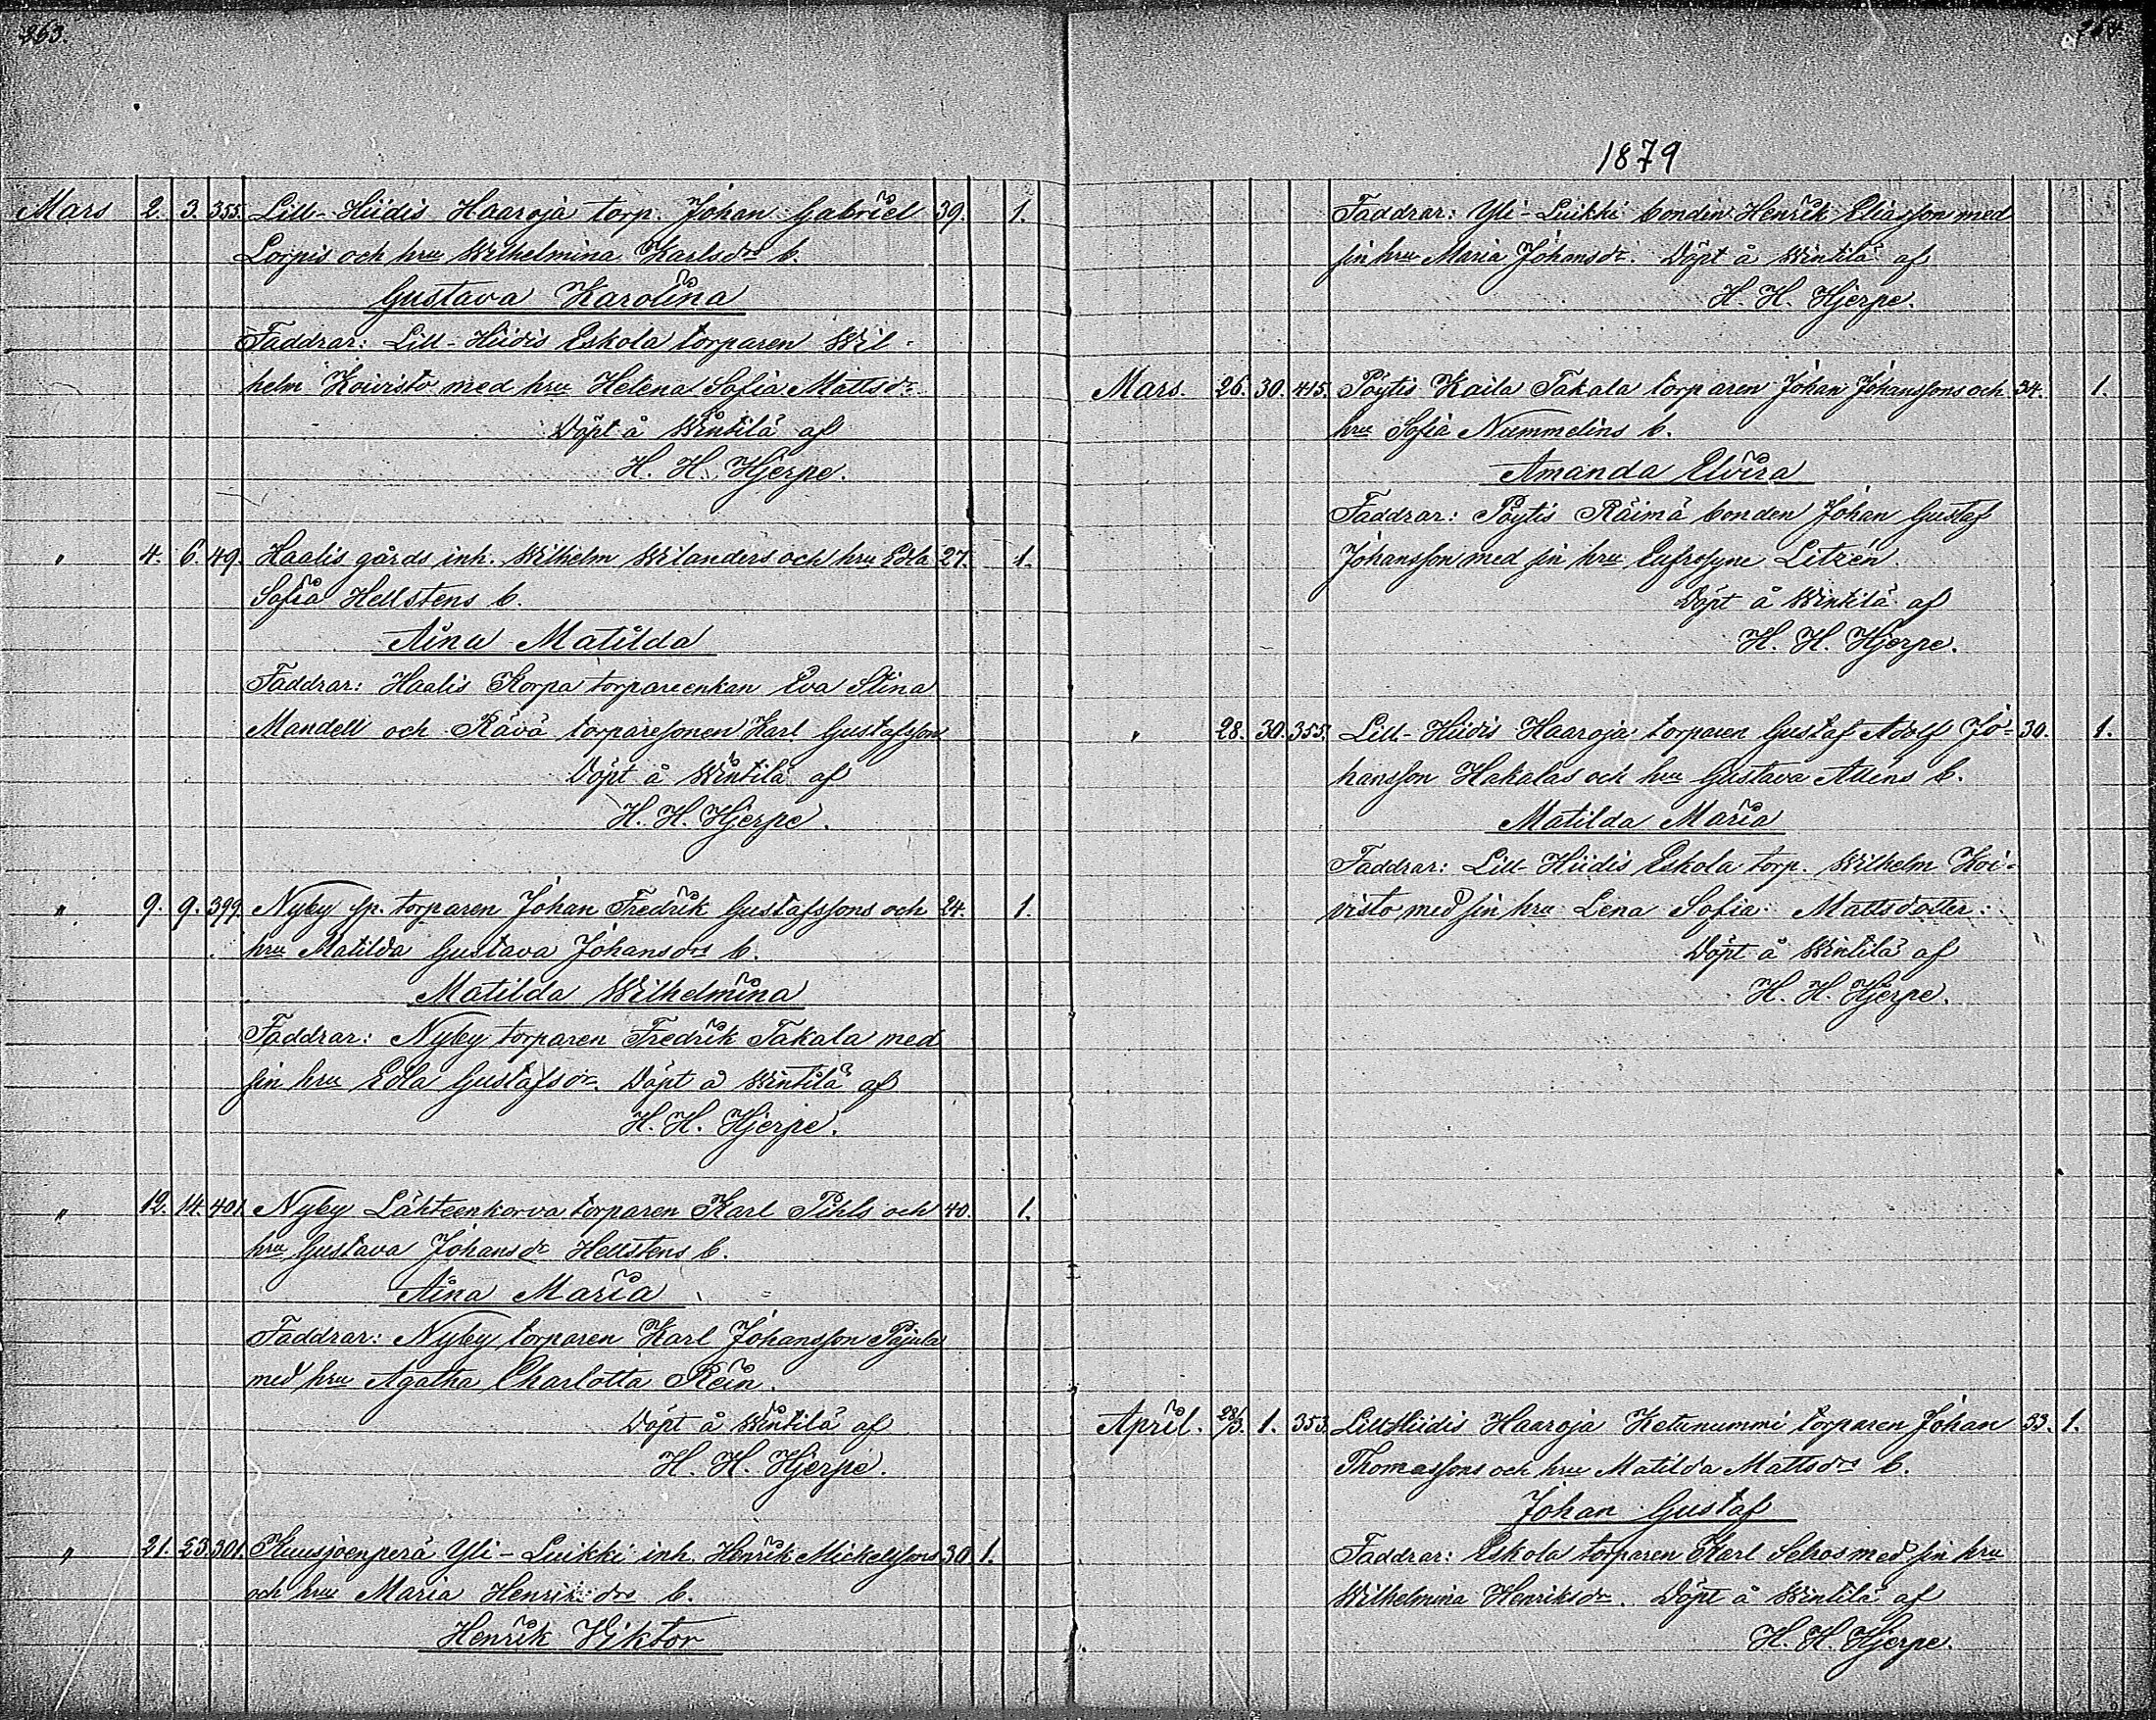 263.
Mars 2. 3. 355. Lill-Hiidis Haaroja torp. Johan Gabriel 39. 1.
Lorpis och hru Wilhelmina Karlsdrs b.
Gustava Karolina
Faddrar: Lill-Hiidis Eskola torparen Wil-
helm Koivisto med hru Helena Sofia Mattsdr
Döpt å Wintilä af
H. H. Hjerpe.
" 4. 6. 49. Haalis gårds inh. Wilhelm Wilanders och hru Edla 27. 1.
Sofia Hellstens b.
Aina Matilda
Faddrar: Haalis Korpa torpareenkan Eva Stina
Mandell och Rävä torparesonen Karl Gustafsson
Döpt å Wintilä af
H. H. Hjerpe.
" 9. 9. 399. Nyby sp. torparen Johan Fredrik Gustafssons och 24. 1.
hru Matilda Gustava Johansdrs b.
Matilda Wilhelmina
Faddrar: Nyby torparen Fredrik Takala med
sin hru Edla Gustafsdr. Döpt å Wintilä af
H. H. Hjerpe.
" 12. 14. 401. Nyby Lähteenkorva torparen Karl Pihls och 40. 1.
hru Gustava Johansdr Hellstens b.
Aina Maria
Faddrar: Nyby torparen Karl Johansson Pajula
med hru Agatha Charlotta Rein.
Döpt å Wintilä af
H. H. Hjerpe.
" 21. 23. 301. Kuusjoenperä Yli-Luikki inh. Henrik Mickelssons 30. 1.
och hru Maria Henriksdrs b.
Henrik Viktor
264.
1879
Faddrar: Yli-Luikki bonden Henrik Eliasson med
sin hru Maria Johansdr. Döpt å Wintilä af
H. H. Hjerpe.
Mars. 26. 30. 415. Pöytis Kaila Takala torparen Johan Johanssons och 34. 1.
hru Sofia Nummelins b.
Amanda Elvira
Faddrar: Pöytis Räimä bonden Johan Gustaf
Johansson med sin hru Eufrosyne Litzén.
Döpt å Wintilä af
H. H. Hjerpe.
" 28. 30. 355. Lill-Hiidis Haaroja torparen Gustaf Adolf Jo- 30. 1.
hansson Hakalas och hru Gustava Allens b.
Matilda Maria
Faddrar: Lill-Hiidis Eskola torp. Wilhelm Koi-
visto med sin hru Lena Sofia Mattsdotter.
Döpt å Wintilä af
H. H. Hjerpe.
April. 28/3. 1. 353. Lill Hiidis Haaroja Ketunummi torparen Johan 33. 1.
Thomassons och hru Matilda Mattsdrs b.
Johan Gustaf
Faddrar: Eskola torparen Karl Selros med sin hru
Wilhelmina Henriksdr. Döpt å Wintilä af
H. H. Hjerpe.